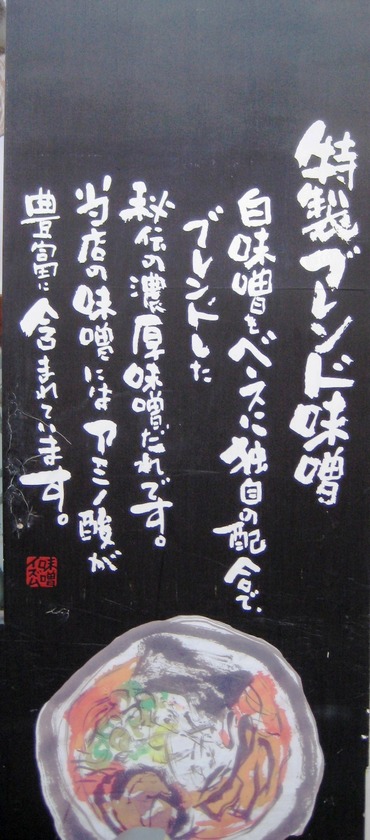 特製ブレンド味噌
白味噌をベースに独自の配合で、
ブレンドした
秘伝の濃厚味噌だれです。
当店の味噌にはアミノ酸が
豊富に含まれています。
味噌
イズム